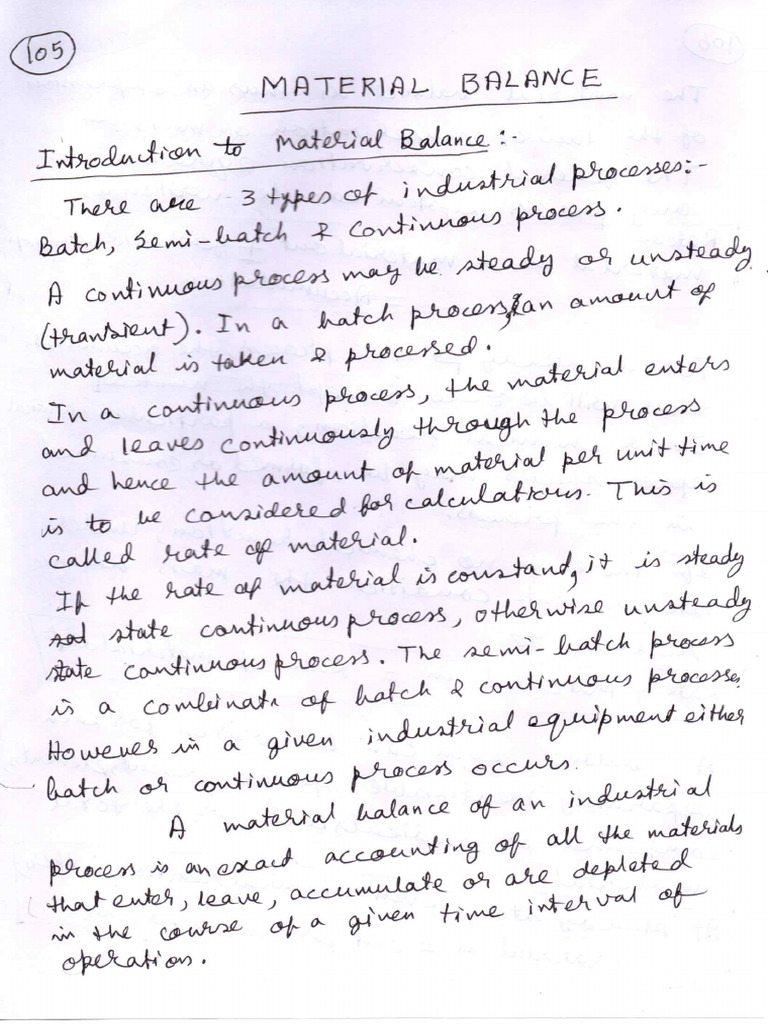 105
MATERIAL BALANCE
Introduction to Material Balance :-
There are 3 types of industrial processes:-
Batch, Semi-batch & Continuous process.
A continuous process may be steady or unsteady
(transient). In a batch process, an amount of
material is taken & processed.
In a continuous process, the material enters
and leaves continuously through the process
and hence the amount of material per unit time
is to be considered for calculations. This is
called rate of material.
If the rate of material is constand, it is steady
state continuous process, otherwise unsteady
state continuous process. The semi-batch process
is a combinatn of batch & continuous processes.
However in a given industrial equipment either
batch or continuous process occurs.
A material balance of an industrial
process is an exact accounting of all the materials
that enter, leave, accumulate or are depleted
in the course of a given time interval of
operation.